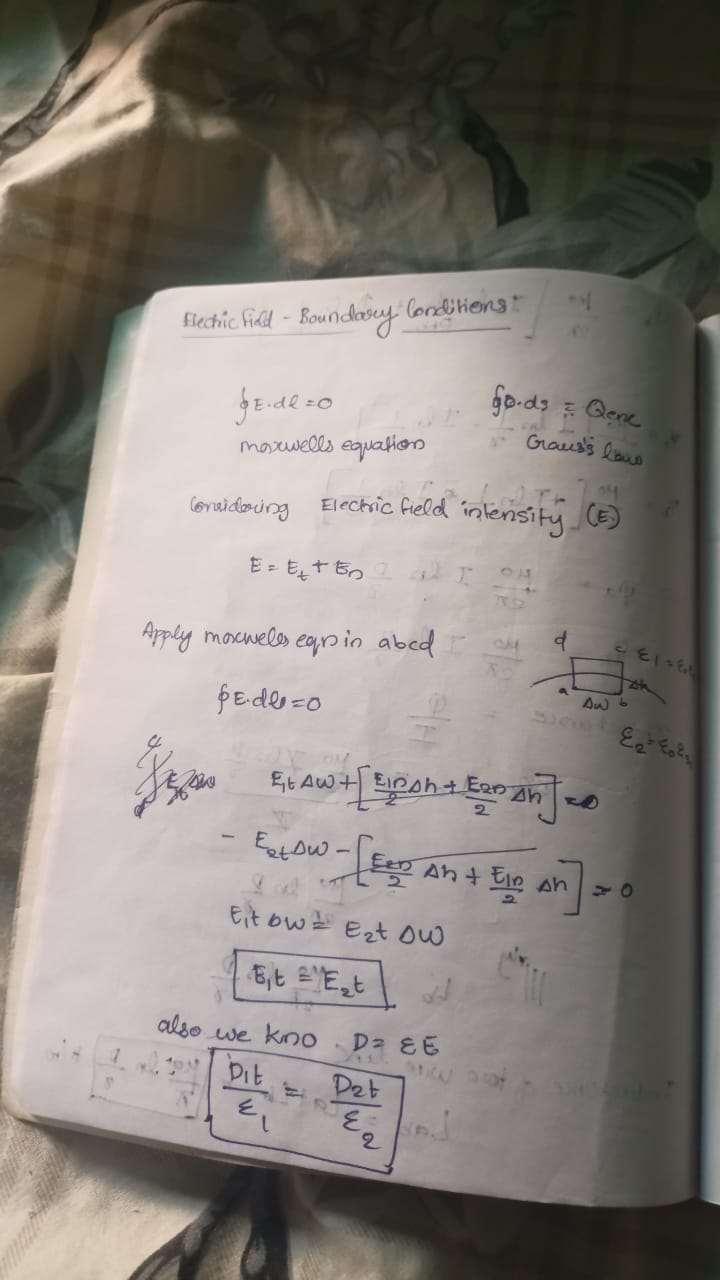 Electric Field - Boundary Conditions:
∮E.dl=0 ∮D.ds = Qenc
maxwells equation Gauss's law
Considering Electric field intensity (E)
E = Et + En
Apply maxwells eqn in abcd
d c ε1 = ε0
a b Δh
Δw
ε2 = ε0ε
∮E.dl=0
E1t Δw + [E1n/2 Δh + E2n/2 Δh] = 0
- E2t Δw - [E2n/2 Δh + E1n/2 Δh] = 0
E1t Δw = E2t Δw
E1t = E2t
also we kno D = εE
D1t/ε1 = D2t/ε2